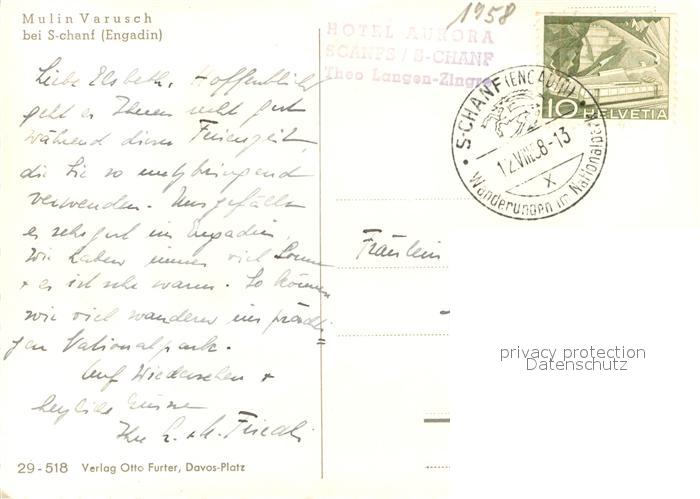 Mulin Varusch
bei S-chanf (Engadin)
1958
HOTEL AURORA
SCANFS / S-CHANF
Theo Langen-Zingre
10 HELVETIA
S-CHANF (ENGADIN)
12.VIII.58-13
X
Wanderungen im Nationalpark
Liebe Elsbeth, Hoffentlich
geht es Ihnen recht gut
während dieser Ferienzeit,
die Sie so nutzbringend
verwenden. Uns gefällt
es sehr gut im Engadin,
wir haben immer viel Sonne
+ es ist sehr warm. So können
wir viel wandern im prächti-
gen Nationalpark.
Auf Wiedersehen +
herzliche Grüsse
Ihre
Fräulein
privacy protection
Datenschutz
29-518 Verlag Otto Furter, Davos-Platz